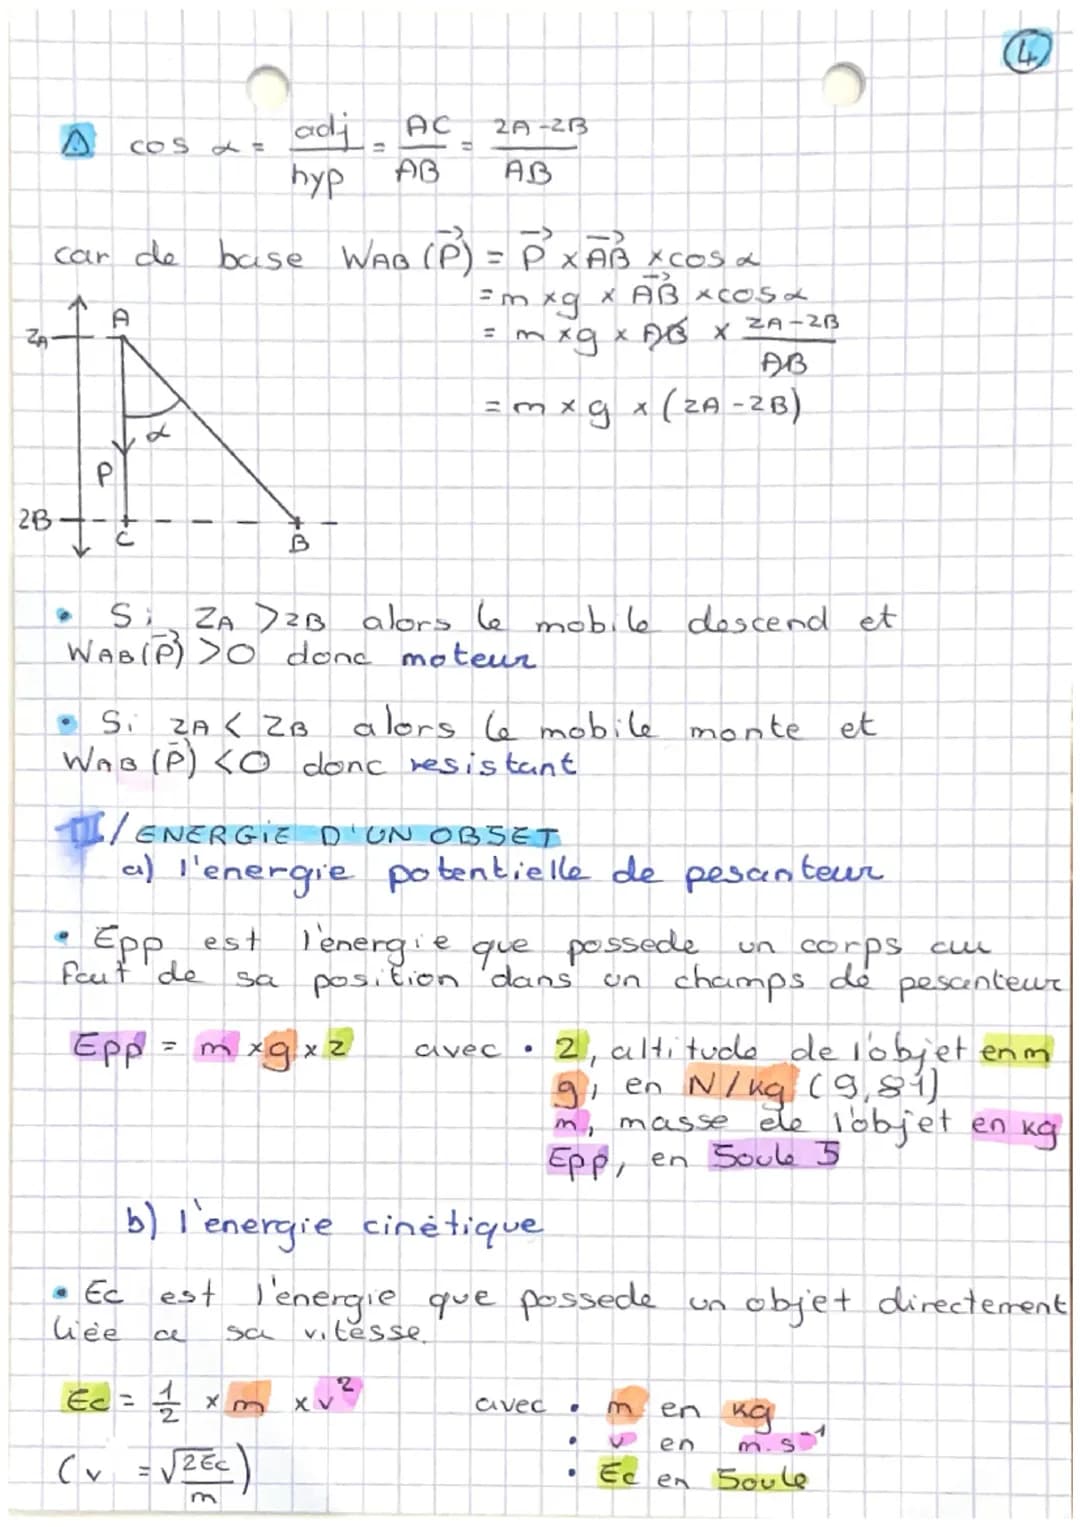 4
⚠ cos α = adj/hyp = AC/AB = zA-zB/AB
car de base WAB (P⃗) = P⃗ x AB⃗ x cos α
= m x g x AB⃗ x cos α
= m x g x AB x zA-zB/AB
= m x g x (zA-zB)
zA
A
α
P
zB
C
B
• Si zA > zB alors le mobile descend et
WAB (P⃗) > 0 donc moteur
• Si zA < zB alors le mobile monte et
WAB (P⃗) < 0 donc resistant
III/ENERGiE D'UN OBJET
a) l'energie potentielle de pesanteur
• Epp est l'énergie que possede un corps au
fait de sa position dans un champs de pesanteur
Epp = m x g x z avec • z, altitude de l'objet en m
g, en N/kg (9,81)
m, masse de l'objet en kg
Epp, en Joule J
b) l'energie cinétique
• Ec est l'énergie que possede un objet directement
liée a sa vitesse.
Ec = 1/2 x m x v² avec • m en kg
• v en m.s⁻¹
(v = √2Ec/m) • Ec en Joule